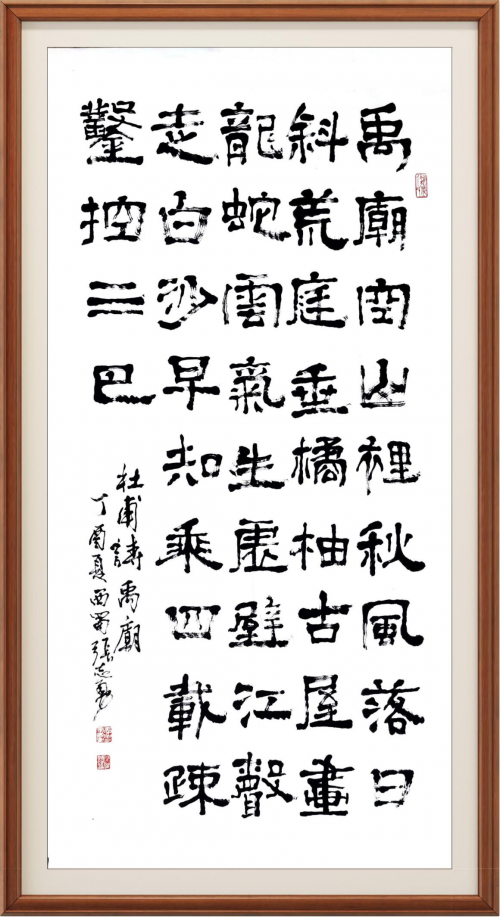 禹廟空山裡秋風落日
斜荒庭垂橘柚古屋畫
龍蛇雲氣生虛壁江聲
走白沙早知乘四載疎
鑿控三巴
杜甫詩禹廟
丁酉夏西蜀張志勇